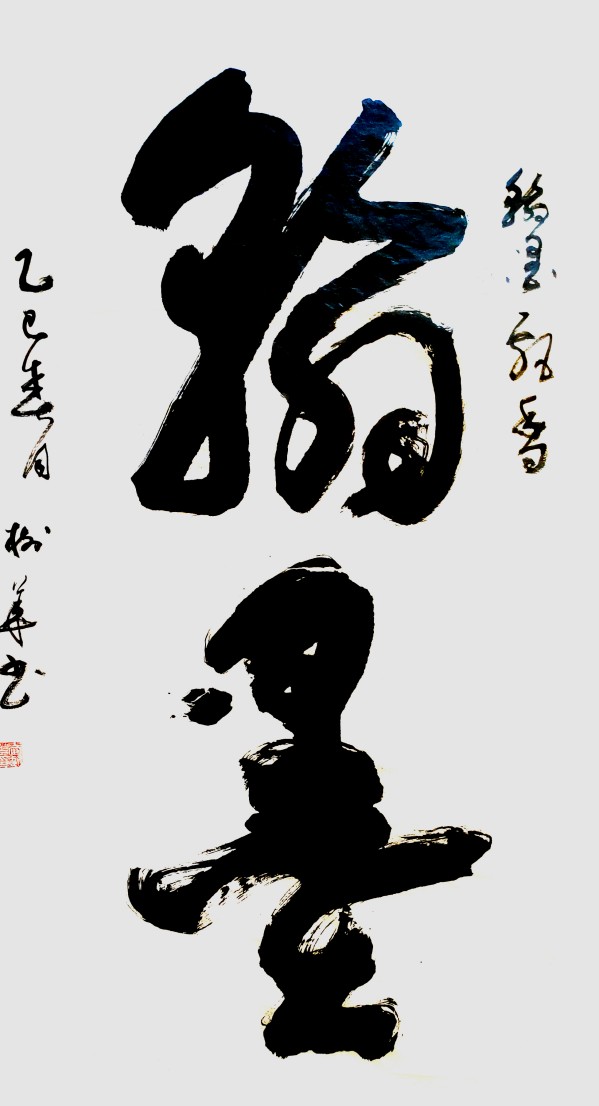 翰墨
翰墨飘香
乙巳春月 树华书